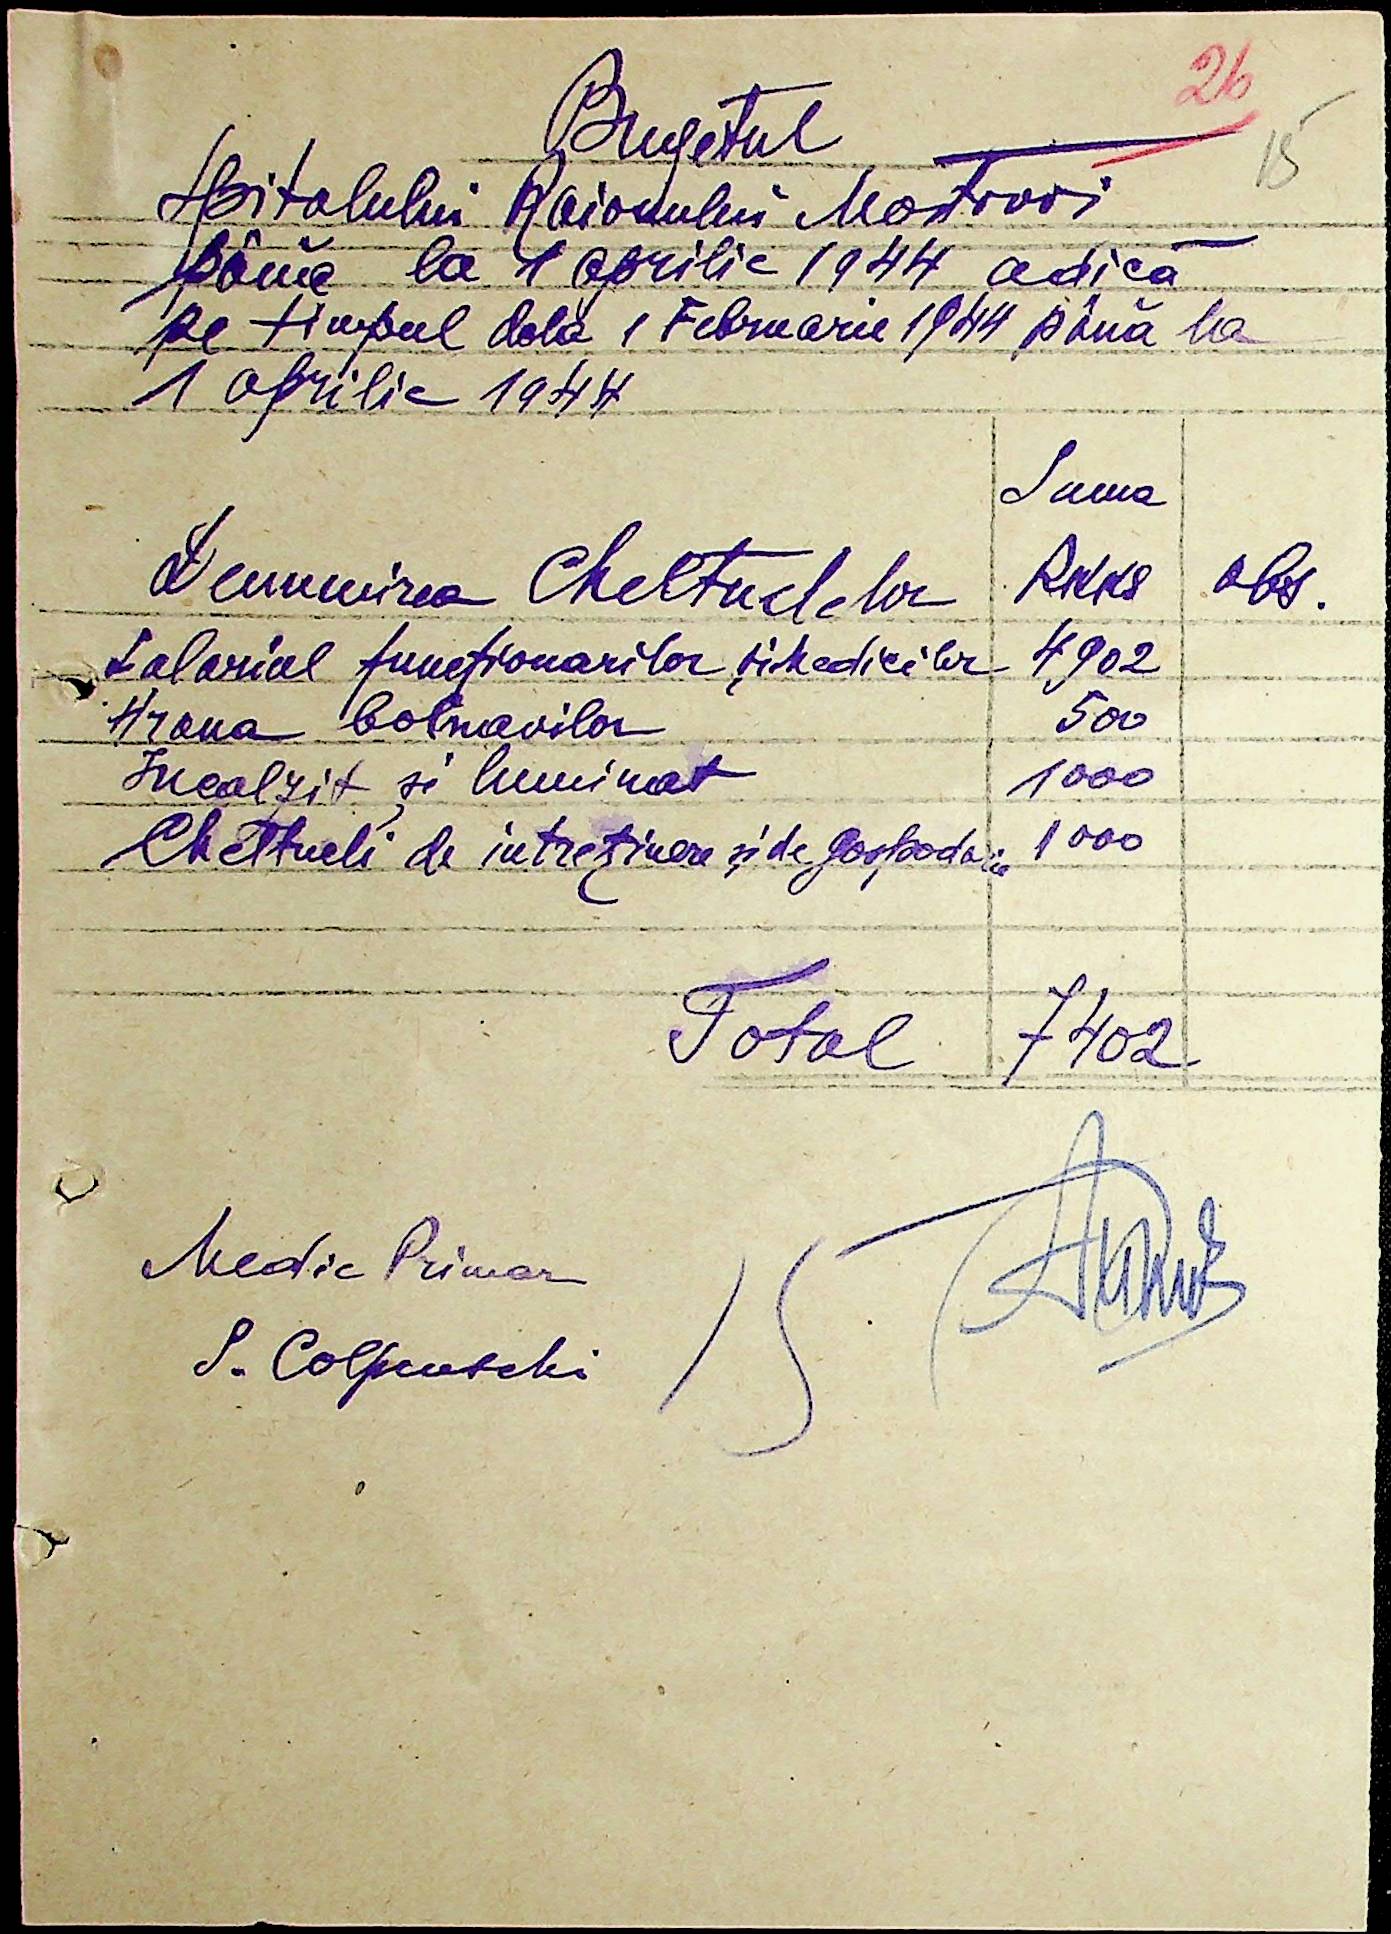 26
15
Bugetul
Spitalului Raionului Mostovoi
până la 1 aprilie 1944 adică
pe timpul dela 1 Februarie 1944 până la
1 aprilie 1944
Suma
Denumirea Cheltuelelor RKKS obs.
Salariul funcționarilor și Medicilor 4902
Hrana bolnavilor 500
Incalzit și luminat 1000
Cheltueli de intreținere și de gospodarie 1000
Total 7402
Medic Primar
S. Colpenschi
15